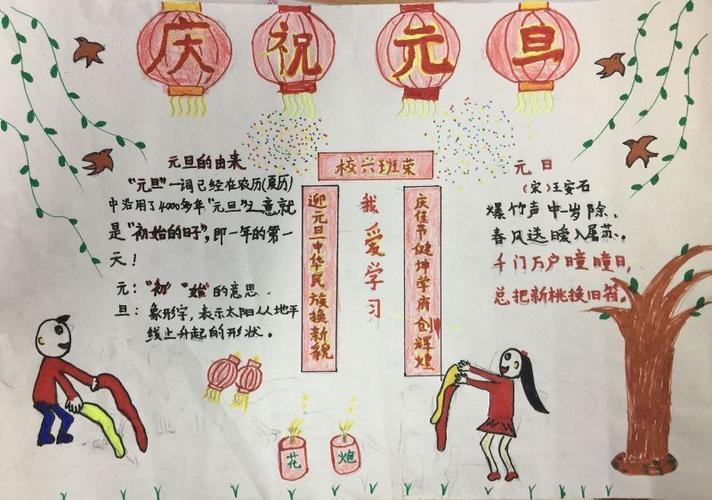 庆祝元旦
元旦的由来
“元旦”一词已经在农历(夏历)
中沿用了4000多年“元旦”之意就
是“初始的日子”,即一年的第一
天!
元:“初”“始”的意思.
旦:象形字,表示太阳从地平
线上升起的形状。
校兴班荣
迎元旦中华民族换新貌
我爱学习
庆佳节健坤学府创辉煌
元日
(宋)王安石
爆竹声中一岁除、
春风送暖入屠苏。
千门万户瞳瞳日,
总把新桃换旧符。
花
炮